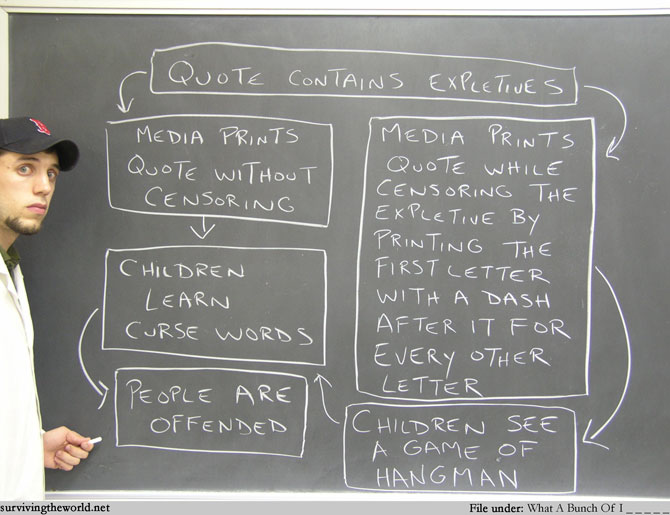 QUOTE CONTAINS EXPLETIVES
MEDIA PRINTS
QUOTE WITHOUT
CENSORING
CHILDREN
LEARN
CURSE WORDS
PEOPLE ARE
OFFENDED
MEDIA PRINTS
QUOTE WHILE
CENSORING THE
EXPLETIVE BY
PRINTING THE
FIRST LETTER
WITH A DASH
AFTER IT FOR
EVERY OTHER
LETTER
CHILDREN SEE
A GAME OF
HANGMAN
survivingtheworld.net
File under: What A Bunch Of I _ _ _ _ _